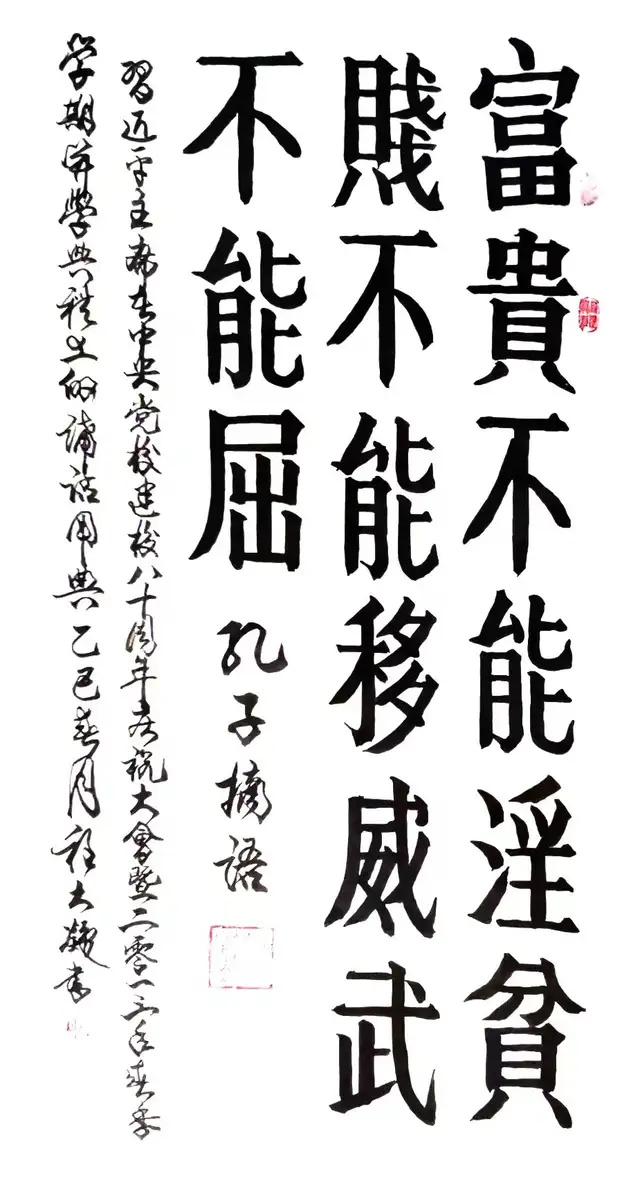 富貴不能淫貧
賤不能移威武
不能屈
孔子摘語
習近平主席在中央党校建校八十周年庆祝大會暨二零一三年春季
学期開學典礼上的講話用典乙巳春月程大凝書